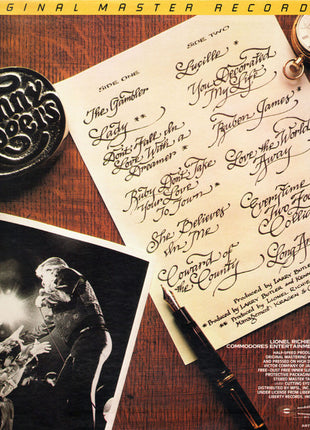 GINAL MASTER RECORD
Rogers
SIDE ONE
The Gambler
Lady
Don't Fall In
Love With a
Dreamer
Ruby Don't Take
Your Love
To Town
She Believes
In Me
Coward of
the County
SIDE TWO
Lucille
You Decorated
My Life
Ruben James
Love the World
Away
Everytime
Two Foo
Collid
Long Ar
Produced by LARRY BUTLE
Produced by LARRY BUTLER and KENN
Produced by LIONEL RICHIE
Management: KRAGEN &
LIONEL RICHIE
COMMODORES ENTERTAINME
HALF-SPEED PRODU
ORIGINAL MASTER
AND PRESSED ON HIGH D
VICTOR COMPANY OF JA
FREE DUST FREE INNER SLE
PROTECTIVE PACKAGIN
STEREO MASTER TA
CUTTING SYST
DISTRIBUTED BY MFSL, INC.
UNDER LICENSE FROM LIBER
LIBERTY RECORDS, INC.